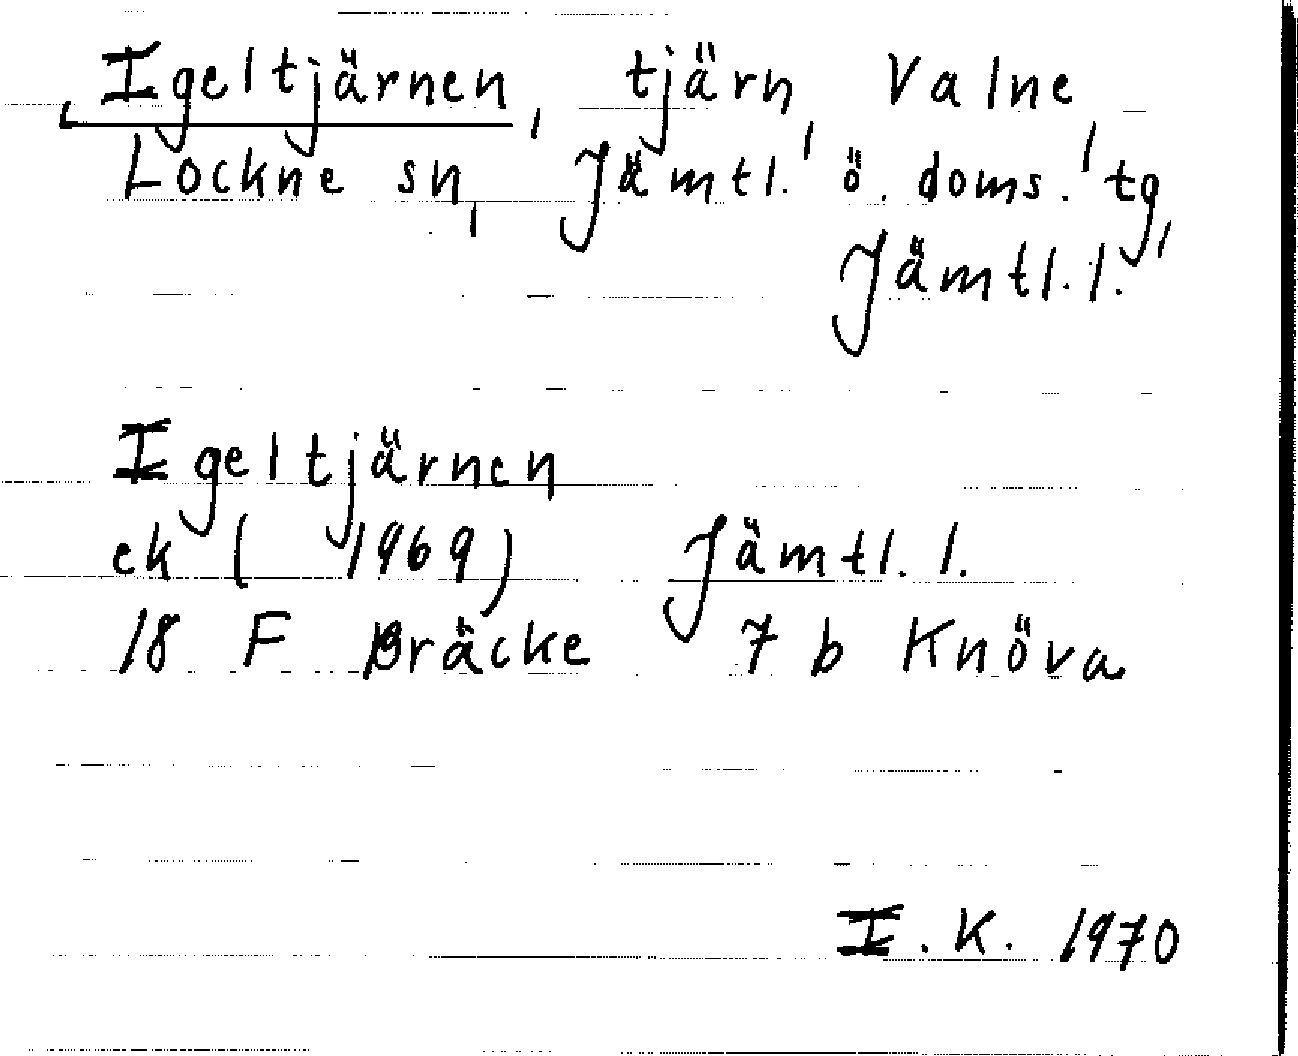 Igeltjärnen, tjärn, Valne,
Lockne sn, Jämtl. ö. doms. tg,
Jämtl. l.
Igeltjärnen
ek ( 1969) Jämtl. l.
18 F Bräcke 7 b Knöva
I. K. 1970